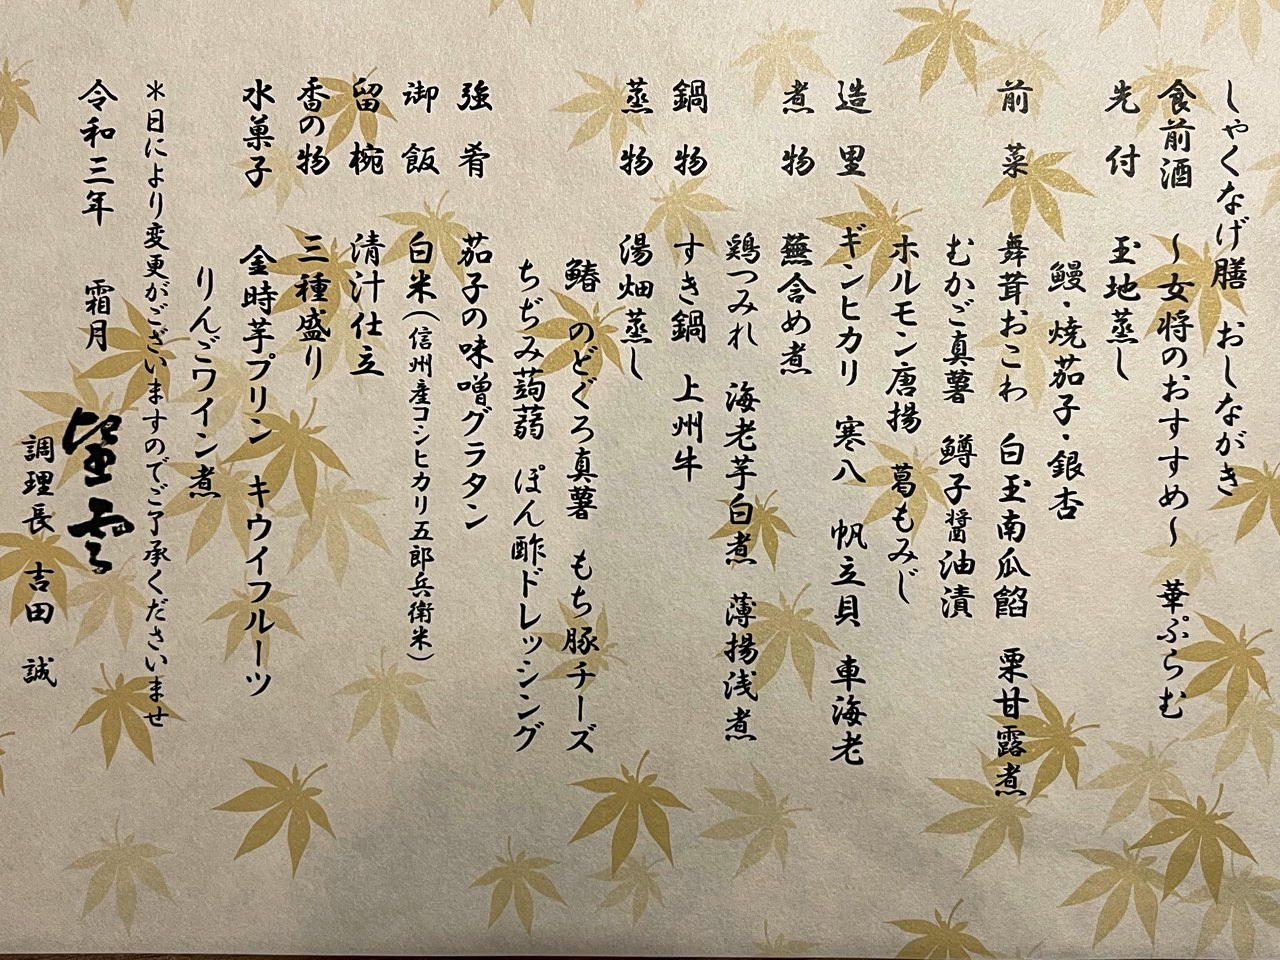 しゃくなげ膳 おしながき
食前酒 ～女将のおすすめ～ 華ぷらむ
先付 玉地蒸し
鰻・焼茄子・銀杏
前菜 舞茸おこわ 白玉南瓜餡 栗甘露煮
むかご真薯 鱒子醤油漬
ホルモン唐揚 葛もみじ
造里 ギンヒカリ 寒八 帆立貝 車海老
煮物 蕪含め煮
鶏つみれ 海老芋白煮 薄揚浅煮
鍋物 すき鍋 上州牛
蒸物 湯畑蒸し
鰆 のどぐろ真薯 もち豚チーズ
ちぢみ蒟蒻 ぽん酢ドレッシング
強肴 茄子の味噌グラタン
御飯 白米(信州産コシヒカリ五郎兵衛米)
留椀 清汁仕立
香の物 三種盛り
水菓子 金時芋プリン キウイフルーツ
りんごワイン煮
＊日により変更がございますのでご了承くださいませ
令和三年 霜月
望雲
調理長 吉田 誠